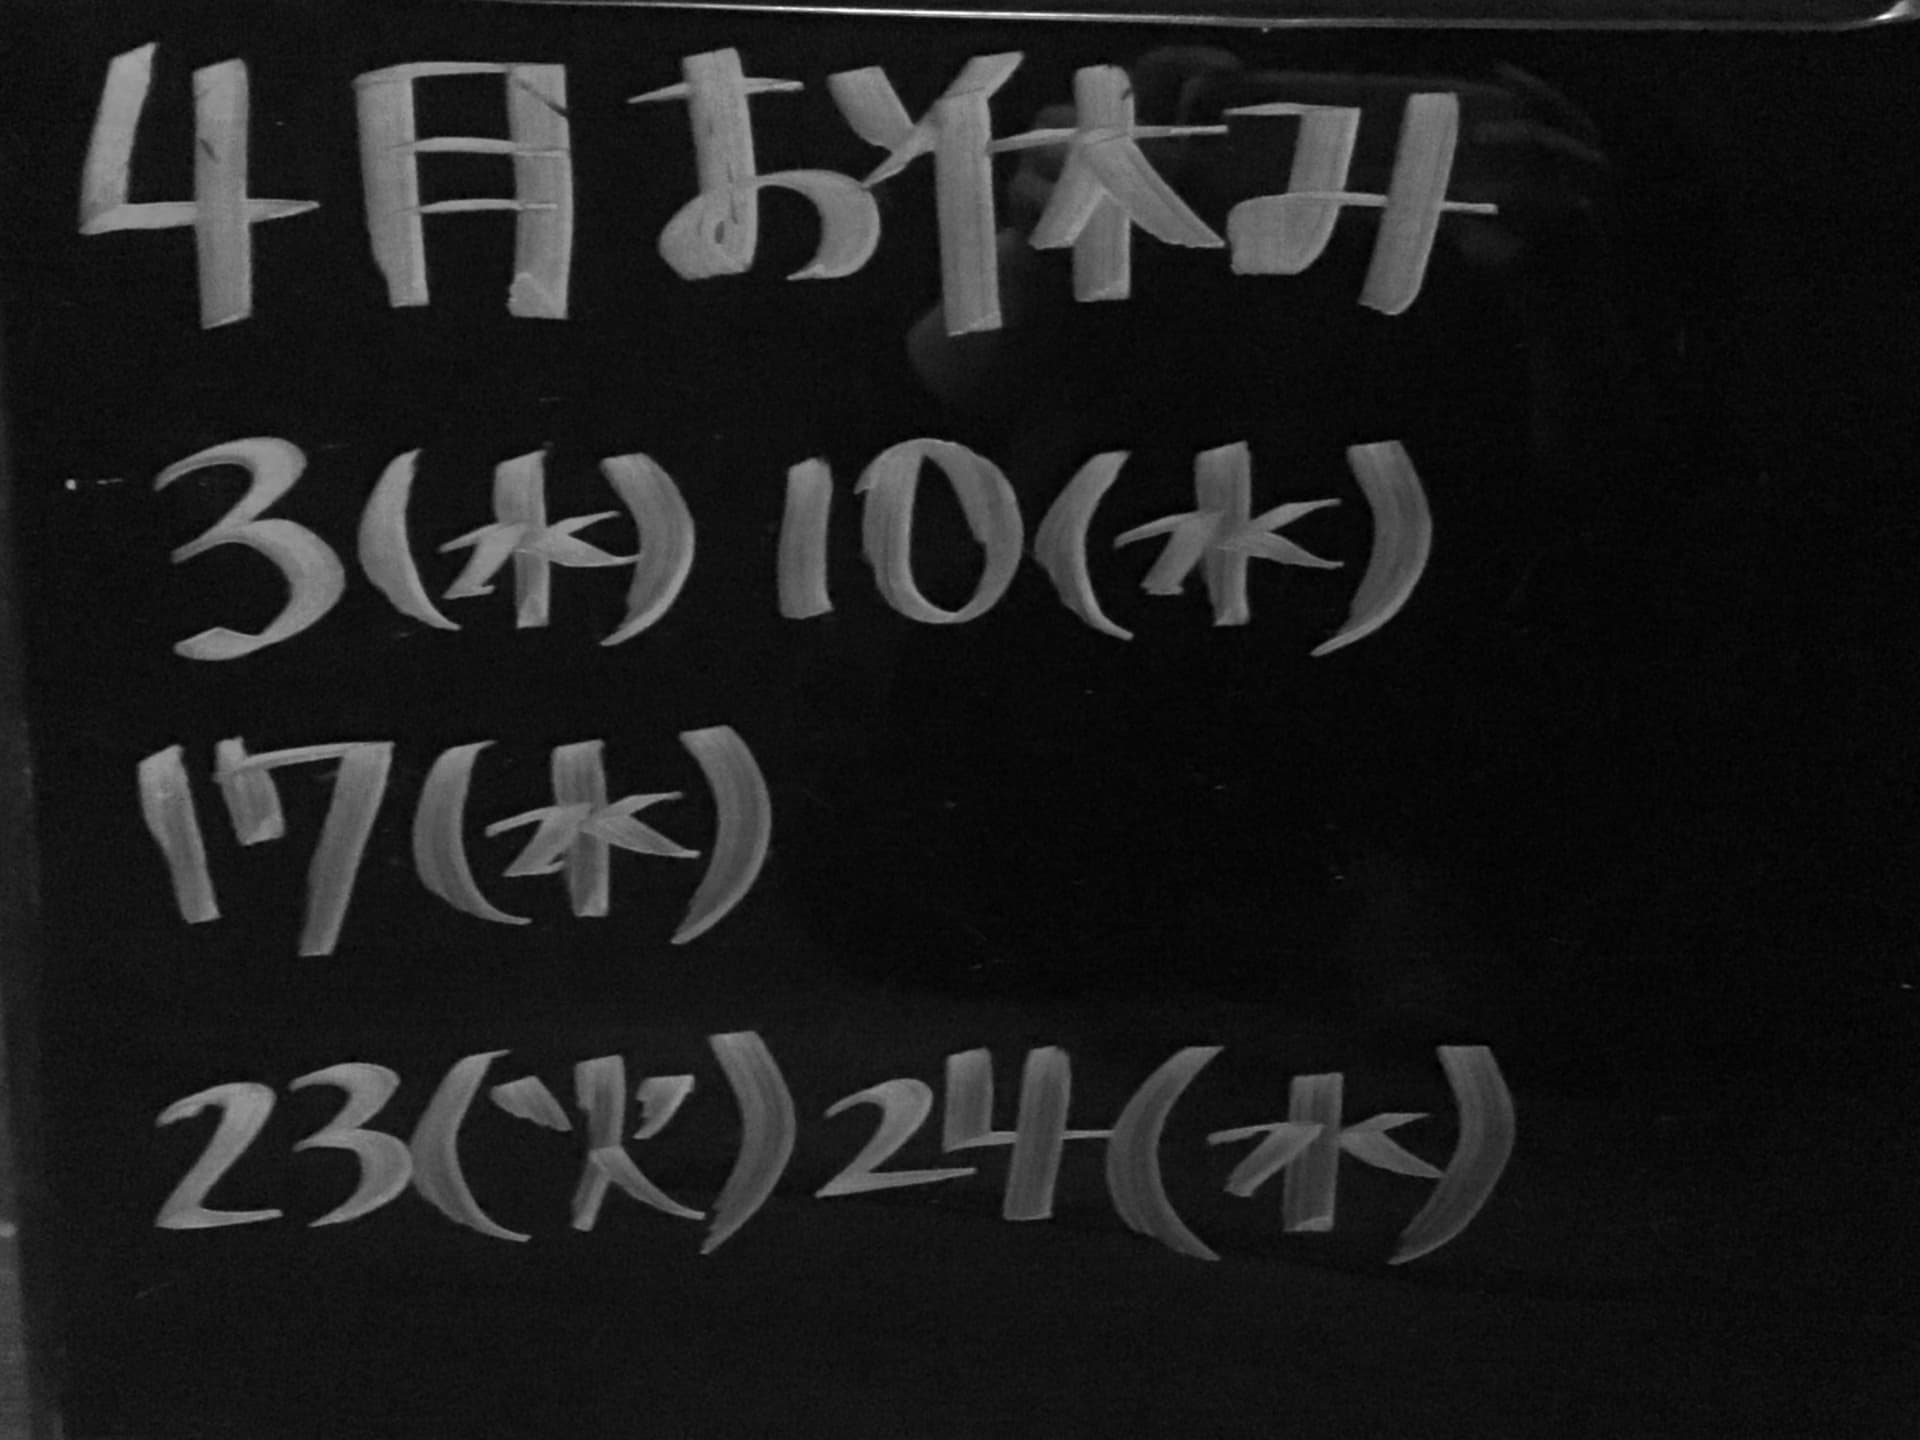 4月お休み
3(水) 10(水)
17(水)
23(火) 24(水)